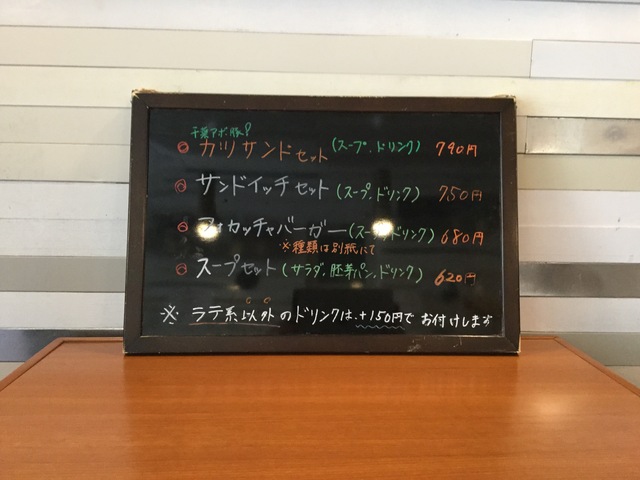 千葉アボ豚
カツサンドセット(スープ、ドリンク) 790円
サンドイッチセット(スープ、ドリンク) 750円
フォカッチャバーガー(スープ、ドリンク) 680円
※種類は別紙にて
スープセット(サラダ、胚芽パン、ドリンク) 620円
※ ラテ系以外のドリンクは、+150円で お付けします